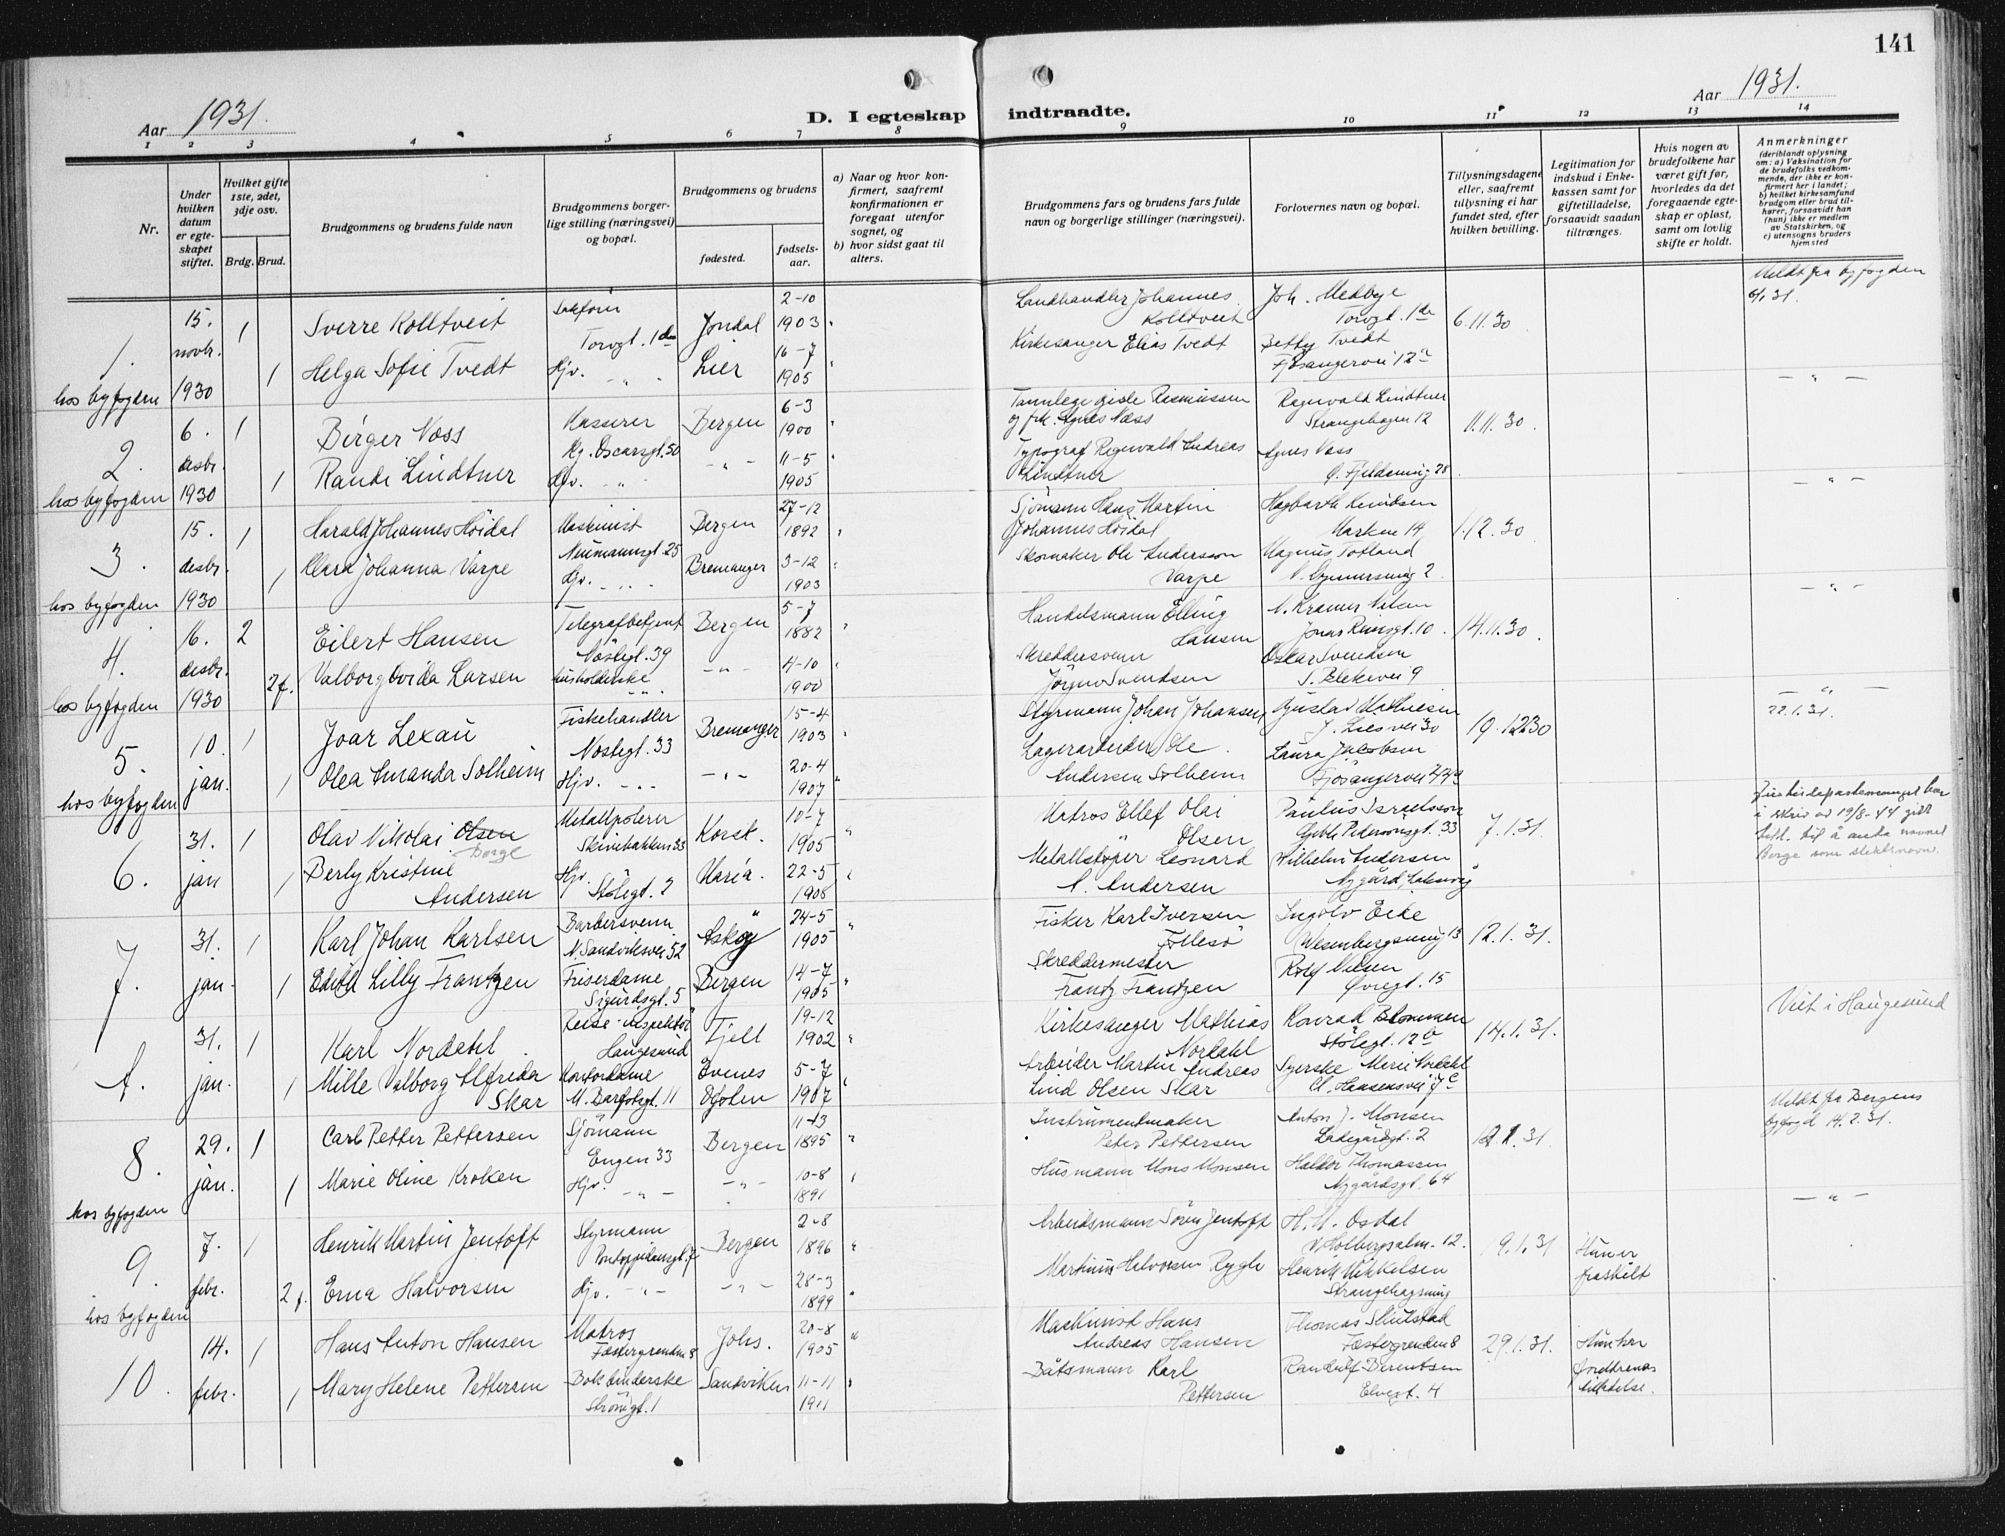 141
Aar 1931.
D. I egteskap indtraadte.
Aar 1931.
1 2 3 4 5 6 7 8 9 10 11 12 13 14
Nr.
Under hvilken datum er egteskapet stiftet.
Hvilket gifte 1ste, 2det, 3dje osv.
Brdg. Brud.
Brudgommens og brudens fulde navn
Brudgommens borgerlige stilling (næringsvei) og bopæl.
Brudgommens og brudens
fødested.
fødselsaar.
a) Naar og hvor konfirmert, saafremt konfirmationen er foregaat utenfor sognet, og
b) hvor sidst gaat til alters.
Brudgommens fars og brudens fars fulde navn og borgerlige stillinger (næringsvei).
Forlovernes navn og bopæl.
Tillysningsdagene eller, saafremt tillysning ei har fundet sted, efter hvilken bevilling.
Legitimation for indskud i Enkekassen samt for giftetilladelse, forsaavidt saadan tiltrænges.
Hvis nogen av brudefolkene har været gift før, hvorledes da det foregaaende egteskap er opløst, samt om lovlig skifte er holdt.
Anmerkninger
(deriblandt oplysning om: a) Vaksination for de brudefolks vedkommende, der ikke er konfirmert her i landet; b) hvilket kirkesamfund brudgom eller brud tilhører, forsaavidt han (hun) ikke er medlem av Statskirken, og c) utensogns bruders hjemsted
1. hos byfogden
15. novbr. 1930
1 Sverre Kolltveit
Torvgt. 1
Jondal 2-10 1903
Landhandler Johannes Kolltveit
Joh. Medbye
Torvgt. 1
6.11.30
Meldt fra byfogden
6/1 31.
1 Helga Sofie Tvedt
Hjv. Lier 16-7 1905
Kirkesanger Elias Tvedt
Betty Tvedt
Fjøsangervei 12
2. hos byfogden
6. desbr. 1930
1 Birger Næss
Kasserer
Kg. Oscarsgt. 50
Bergen 6-3 1900
Tannlege Gisle Rasmussen
og frk. Agnes Næss
Ragnvald Lindtner
Strangehagen 12
11.11.30.
— " —
1 Randi Lindtner
Hjv. — " — 11-5 1905
Typograf Ragnvald Andreas Lindtner
Agnes Næss
3. hos byfogden
15. desbr. 1930
1 Harald Johannes Höidal
Maskinist
Neumannsgt. 25
Bergen 27-12 1892
Sjömann Hans Martin Johannes Höidal
Hagbarth Knudsen
Marken 14
1.12.30
— " —
1 Clara Johanna Varpe
Hjv. Bremanger 3-12 1903
Skomaker Ole Anderson Varpe
Magnus Totland
4. hos byfogden
16. desbr. 1930
2 Eilert Hansen
Telegrafbetjent
Nöstegt. 39
Bergen 5-7 1882
Handelsmann Elling Hansen
Jonas Reinsgt. 10
14.11.30.
— " —
2 f. Valborg Ovida Larsen
husholderske
— " — 4-10 1900
Skreddersvenn Jörgen Svendsen
Oskar Svendsen
5. hos byfogden
10. jan.
1 Joar Lexau
Fiskehandler
Nöstegt. 33
Bremanger 15-4 1903
Styrmann Johan Johansen
Gustav Mathiesen
J. Liesvei 30
19.12.30
— " —
22.1.31.
1 Olea Amanda Solheim
Hjv. — " — 20-4 1907
Lagerarbeider Ole Andersen Solheim
Laura Jakobsen
6.
31. jan
1 Olav Nikolai Olsen
Berge
Metallpolerer
Skivebakken 33
Korsk. 10-7 1905
Matros Ellef Olai Olsen
Paulus Israelsson
7.1.31.
Justisdepartementet har
i skriv av 19/8-44 gitt
till. til å anta navnet
Berge som slektsnavn.
1 Berly Kristine Andersen
Hjv. Stölegt. 2
Maria. 22-5 1908
Metallstöper Leonard A. Andersen
Wilhelm Andersen
7.
31. jan.
1 Karl Johan Karlsen
Barbersvenn
N. Sandviksvei 52
Asköy 24-5 1905
Fisker Karl Iversen Follesö
Ingolv Eide
12.1.31.
1 Edith Lilly Frantzen
Friserdame
Sigurdsgt. 5
Bergen 14-7 1905
Skreddermester Frantz Frantzen
Rolf Nilsen
Øvregt. 15
A.
31. jan.
1 Karl Nordahl
Reise-inspektör
Haugesund
Tjelt 19-12 1902
Kirkesanger Mathias Nordahl
Konrad Blommen
Stölegt. 12
14.1.31.
Viet i Haugesund
1 Mille Valborg Alfreda Skar
Kontordame
Evenes 5-7 1907
Arbeider Martin Andreas Lind Olsen Skar
Syerske Marie Nordahl
8. hos byfogden
29. jan.
1 Carl Petter Pettersen
Sjömann
Engen 33
Bergen 11-3 1895
Instrumentmaker Peter Pettersen
Anton J. Monsen
Ladegårdsgt. 2
Meldt fra Bergens
byfogd 14.2.31.
1 Marie Oline Kroken
Hjv. — " — 10-8 1891
Husmann Mons Monsen
Halder Thomassen
Nygårdsgt. 64
9. hos byfogden
7. febr.
1 Henrik Martin Jentoft
Styrmann
Bergen 2-8 1896
Arbeidsmann Sören Jentoft
H. M. Osdal
19.1.31
Hun er fraskilt
— " —
2 f. Erna Halvorsen
Hjv. — " — 28-3 1899
Martinus Halvorsen Rygh
Henrik Mikkelsen
10.
14. febr.
1 Hans Anton Hansen
Matros
Fæstergrenden 8
Johs. 20-8 1905
Maskinist Hans Andreas Hansen
Fæstergrenden 8
29.1.31.
Hun har foreldrenes tillatelse.
1 Mary Helene Pettersen
Bokbinderske
Sandviken 11-11 1911
Båtsmann Karl Pettersen
Randulf Berentsen
Elvegt. 4